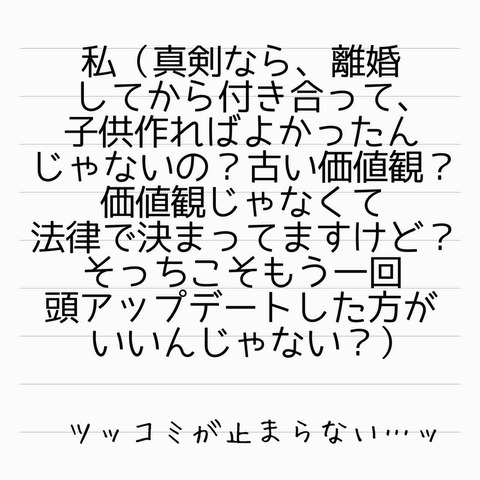 私（真剣なら、離婚
してから付き合って、
子供作ればよかったん
じゃないの？古い価値観？
価値観じゃなくて
法律で決まってますけど？
そっちこそもう一回
頭アップデートした方が
いいんじゃない？）
ツッコミが止まらない…ッ